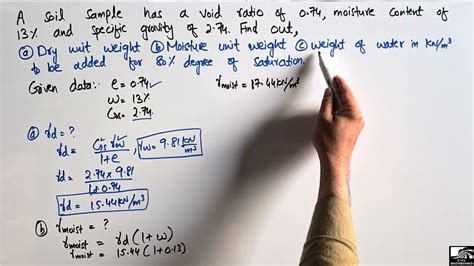 A soil sample has a void ratio of 0.74, moisture content of
13% and specific gravity of 2.74. Find out,
ⓐ Dry unit weight ⓑ Moisture unit weight ⓒ weight of water in KN/m³
to be added for 80% degree of saturation.
Given data: e = 0.74 ✓
w = 13%
Gs = 2.74
γmoist = 17.44 KN/m³
ⓐ γd = ?
γd = Gs γw / 1+e
γw = 9.81 KN/m³
γd = 2.74 × 9.81 / 1+0.74
γd = 15.44 KN/m³
ⓑ γmoist = ?
γmoist = γd (1+w)
γmoist = 15.44 (1+0.13)